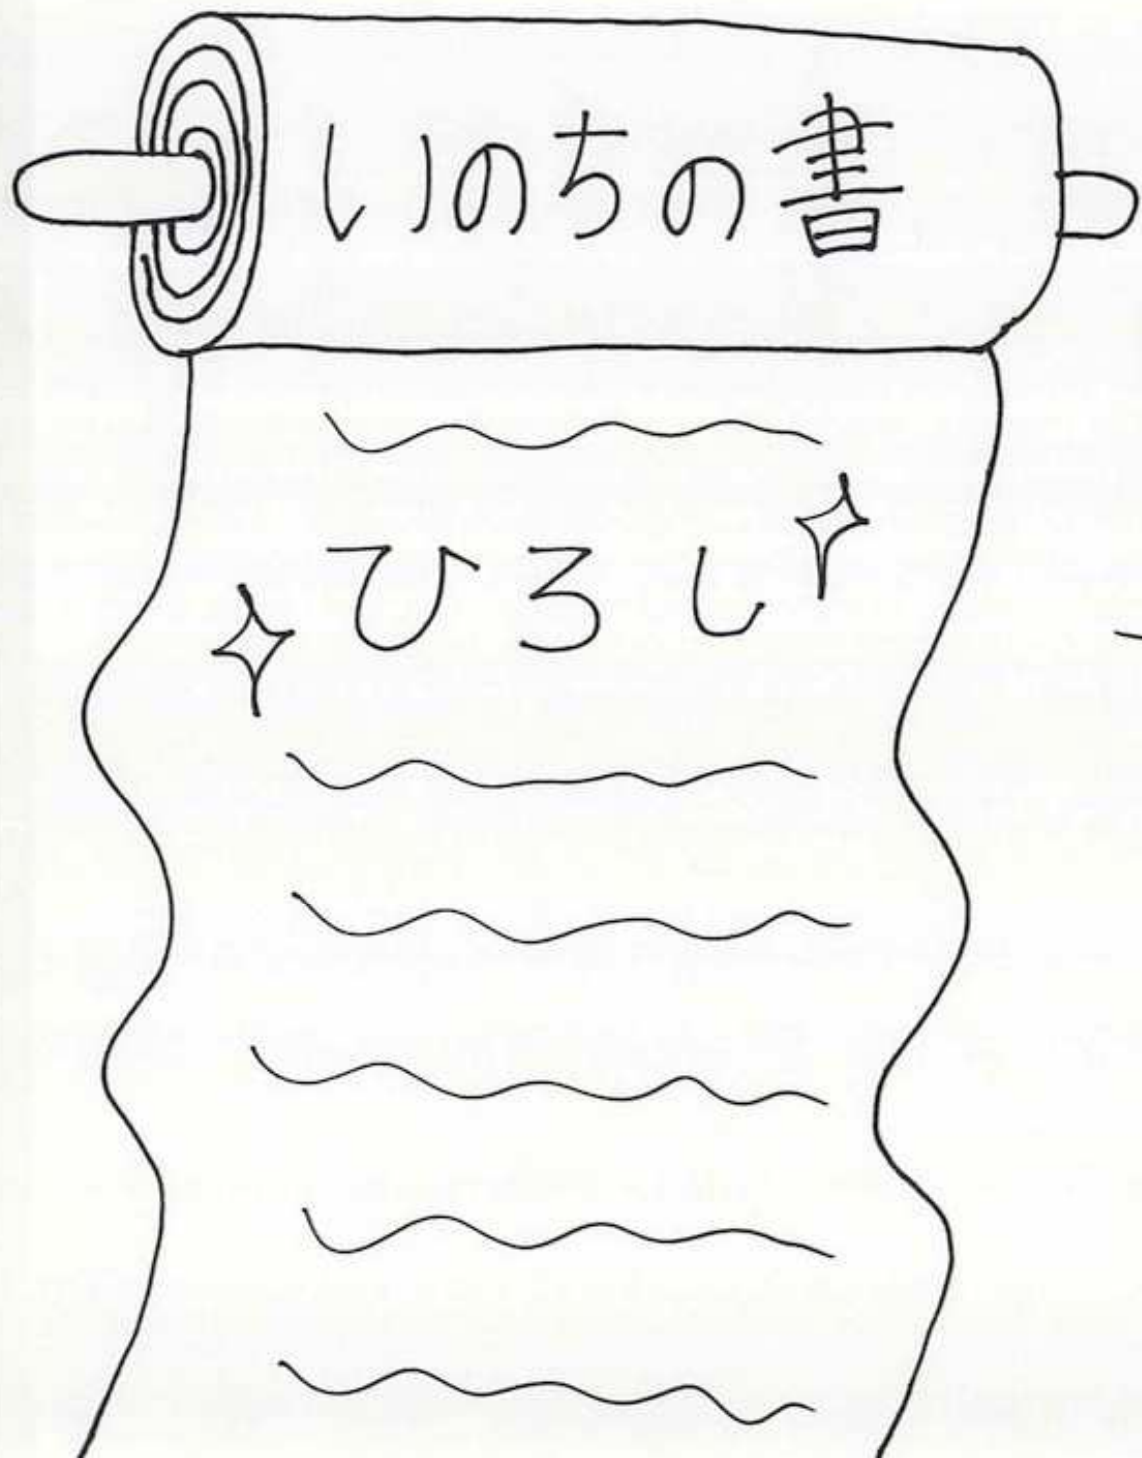 いのちの書
ひろし